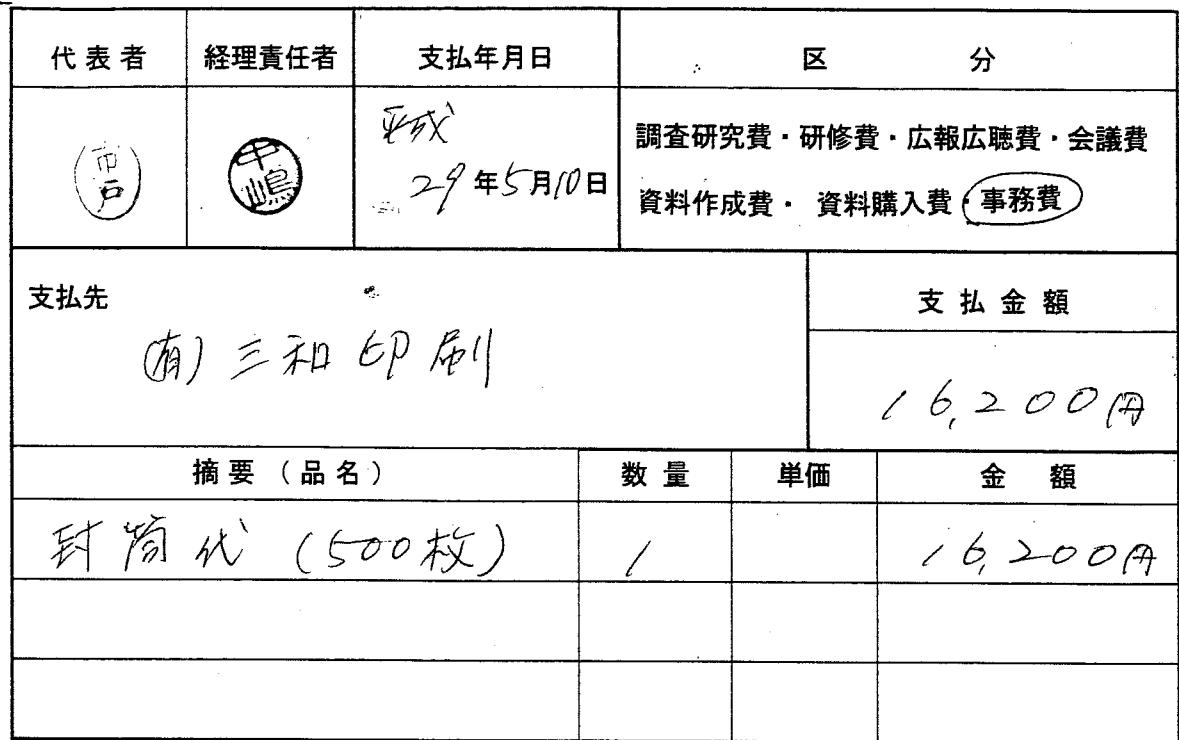 代表者 経理責任者 支払年月日 区 分
市戸 中嶋 平成
29年5月10日
調査研究費・研修費・広報広聴費・会議費
資料作成費・資料購入費・事務費
支払先 支払金額
(有)三和印刷
16,200円
摘要(品名) 数量 単価 金額
封筒代(500枚) 1 16,200円